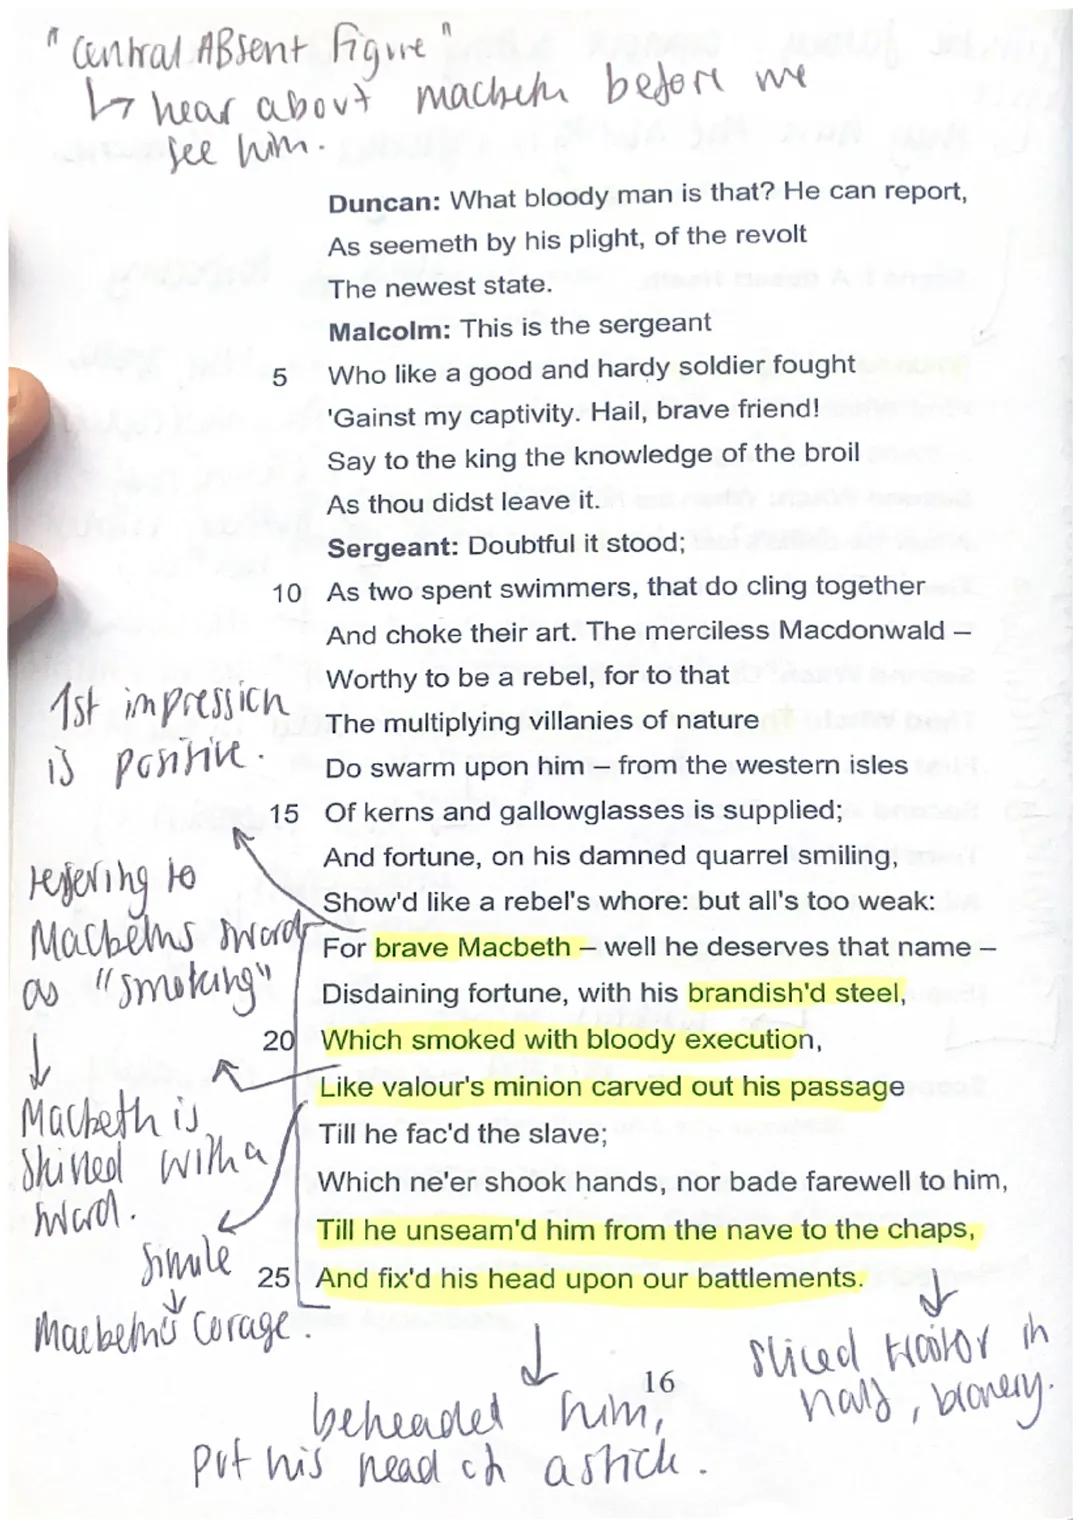 "Central ABsent figure"
↳ hear about macbeth before we
see him.
Duncan: What bloody man is that? He can report,
As seemeth by his plight, of the revolt
The newest state.
Malcolm: This is the sergeant
5 Who like a good and hardy soldier fought
'Gainst my captivity. Hail, brave friend!
Say to the king the knowledge of the broil
As thou didst leave it.
Sergeant: Doubtful it stood;
10 As two spent swimmers, that do cling together
And choke their art. The merciless Macdonwald –
Worthy to be a rebel, for to that
The multiplying villanies of nature
Do swarm upon him – from the western isles
15 Of kerns and gallowglasses is supplied;
And fortune, on his damned quarrel smiling,
Show'd like a rebel's whore: but all's too weak:
For brave Macbeth – well he deserves that name –
Disdaining fortune, with his brandish'd steel,
20 Which smoked with bloody execution,
Like valour's minion carved out his passage
Till he fac'd the slave;
Which ne'er shook hands, nor bade farewell to him,
Till he unseam'd him from the nave to the chaps,
25 And fix'd his head upon our battlements.
1st impression
is positive.
refering to
Macbeths sword
as "smoking"
↓
Macbeth is
skilled with a
sword.
Simile
↓
Macbeth's corage.
↓
beheaded him,
put his head on a stick.
↓
sliced traitor in
half, bravery.
16